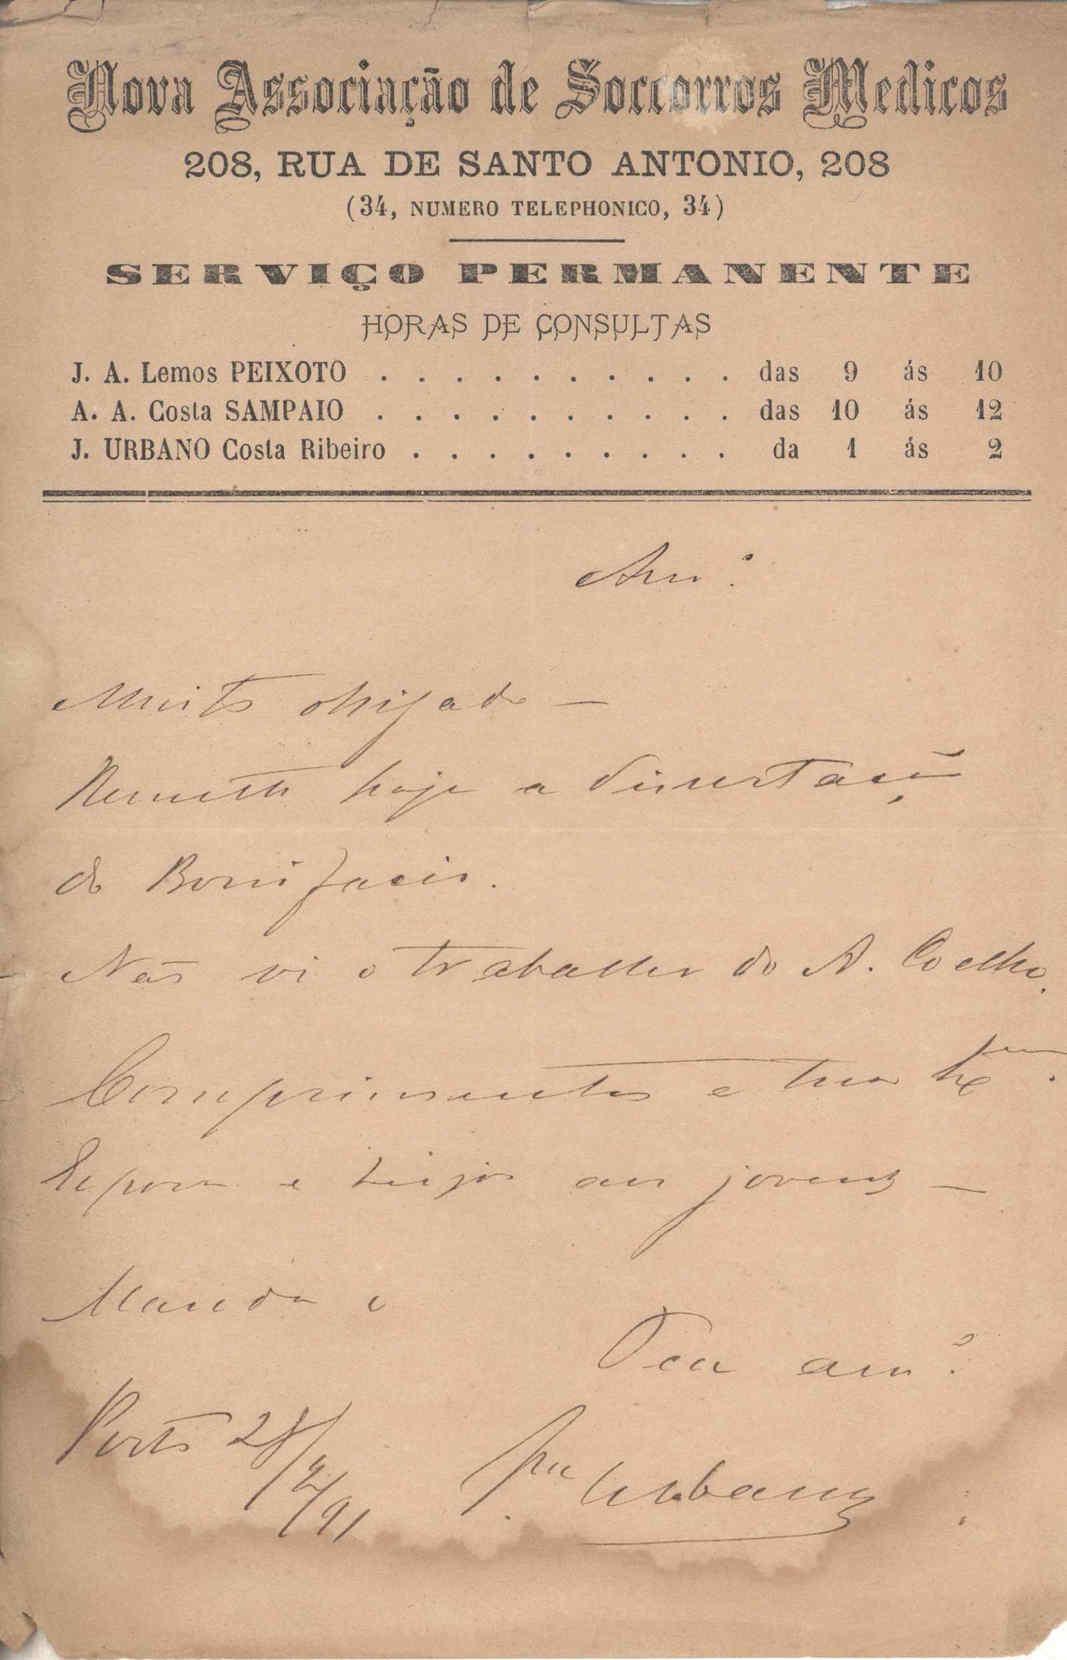 Nova Associação de Soccorros Medicos
208, RUA DE SANTO ANTONIO, 208
(34, NUMERO TELEPHONICO, 34)
SERVIÇO PERMANENTE
HORAS DE CONSULTAS
J. A. Lemos PEIXOTO . . . . . . . . . . das 9 ás 10
A. A. Costa SAMPAIO . . . . . . . . . . das 10 ás 12
J. URBANO Costa Ribeiro . . . . . . . . . da 1 ás 2
Amº
Muito obrigado —
Remetto hoje a dissertação
do Bonifacio.
Não vi o trabalho do A. Coelho.
Comprimentos a tua
Esposa e beijos aos jovens —
Manda o
Teu amº
Porto 28/2/91
Urbano